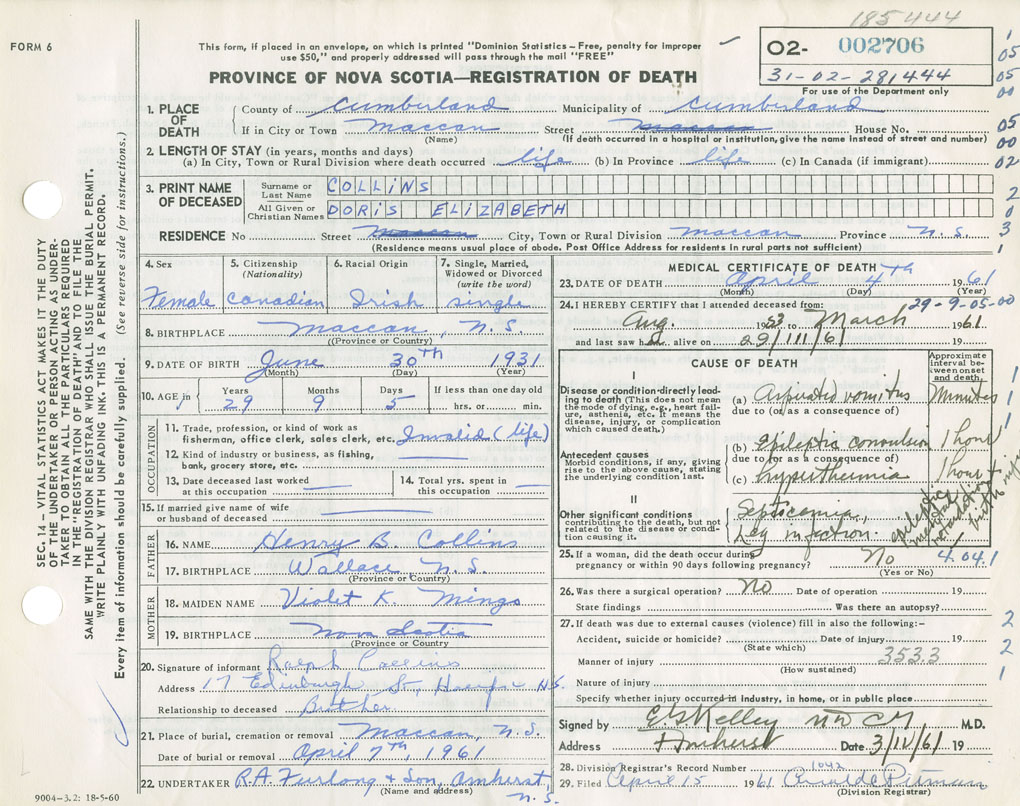 185444
FORM 6
This form, if placed in an envelope, on which is printed "Dominion Statistics – Free, penalty for improper
use $50," and properly addressed will pass through the mail "FREE"
PROVINCE OF NOVA SCOTIA—REGISTRATION OF DEATH
O2- 002706
31-02-281444
For use of the Department only
1. PLACE OF DEATH
County of Cumberland Municipality of Cumberland
If in City or Town Maccan Street Maccan House No.
(Name) (If death occurred in a hospital or institution, give the name instead of street and number)
2. LENGTH OF STAY (in years, months and days)
(a) In City, Town or Rural Division where death occurred life (b) In Province life (c) In Canada (if immigrant)
3. PRINT NAME OF DECEASED
Surname or Last Name COLLINS
All Given or Christian Names DORIS ELIZABETH
RESIDENCE No Street Maccan City, Town or Rural Division Maccan Province N.S.
(Residence means usual place of abode. Post Office Address for residents in rural parts not sufficient)
4. Sex
Female
5. Citizenship (Nationality)
Canadian
6. Racial Origin
Irish
7. Single, Married, Widowed or Divorced (write the word)
single
8. BIRTHPLACE Maccan, N.S.
((Province or Country)
9. DATE OF BIRTH June 30th 1931
(Month) (Day) (Year)
10. AGE in
Years 29
Months 9
Days 5
If less than one day old
hrs. or min.
OCCUPATION
11. Trade, profession, or kind of work as
fisherman, office clerk, sales clerk, etc. Invalid (life)
12. Kind of industry or business, as fishing,
bank, grocery store, etc.
13. Date deceased last worked
at this occupation
14. Total yrs. spent in
this occupation
15. If married give name of wife
or husband of deceased
FATHER
16. NAME Henry B. Collins
17. BIRTHPLACE Wallace N.S.
(Province or Country)
MOTHER
18. MAIDEN NAME Violet K. Mingo
19. BIRTHPLACE Nova Scotia
(Province or Country
20. Signature of informant Ralph Collins
Address 17 Edinburgh St, N.S.
Relationship to deceased Brother
21. Place of burial, cremation or removal Maccan, N.S.
Date of burial or removal April 7th, 1961
22. UNDERTAKER R.A. Furlong & Son, Amherst, N.S.
(Name and address)
9004–3.2: 18-5-60
MEDICAL CERTIFICATE OF DEATH
23. DATE OF DEATH April 4th 1961
(Month) (Day) (Year)
24. I HEREBY CERTIFY that I attended deceased from: 29-9-05-00
Aug. 1953 to March 1961
and last saw h alive on 29/III/61 19
CAUSE OF DEATH
Approximate interval between onset and death.
I
Disease or condition directly leading to death (This does not mean the mode of dying, e.g., heart failure, asthenia, etc. It means the disease, injury, or complication which caused death.)
(a) Aspirated vomitus Minutes
due to (or as a consequence of)
Antecedent causes
Morbid conditions, if any, giving rise to the above cause, stating the underlying condition last.
(b) Epileptic convulsion 1 hour
due to (or as a consequence of)
(c) hyperthermia 1 hour +
II
Other significant conditions
contributing to the death, but not related to the disease or condition causing it.
Septicemia,
Leg infection.
epileptic
25. If a woman, did the death occur during
pregnancy or within 90 days following pregnancy? No 4.04.1
(Yes or No)
26. Was there a surgical operation? No Date of operation 19
State findings Was there an autopsy?
27. If death was due to external causes (violence) fill in also the following:–
Accident, suicide or homicide? Date of injury 19
(State which)
Manner of injury 353.3
(How sustained)
Nature of injury
Specify whether injury occurred in industry, in home, or in public place
Signed by E S Kelley MD CM, M.D.
Address Amherst Date 3/IV/61 19
28. Division Registrar's Record Number 1042
29. Filed April 15 1961
(Division Registrar)
SEC. 14 – VITAL STATISTICS ACT MAKES IT THE DUTY
OF THE UNDERTAKER OR PERSON ACTING AS UNDER-
TAKER TO OBTAIN ALL THE PARTICULARS REQUIRED
IN THE "REGISTRATION OF DEATH" AND TO FILE THE
SAME WITH THE DIVISION REGISTRAR WHO SHALL ISSUE THE BURIAL PERMIT.
WRITE PLAINLY WITH UNFADING INK. THIS IS A PERMANENT RECORD.
Every item of information should be carefully supplied. (See reverse side for instructions.)
1
05
05
00
05
00
02
2
0
3
1
1
1
1
2
2
1